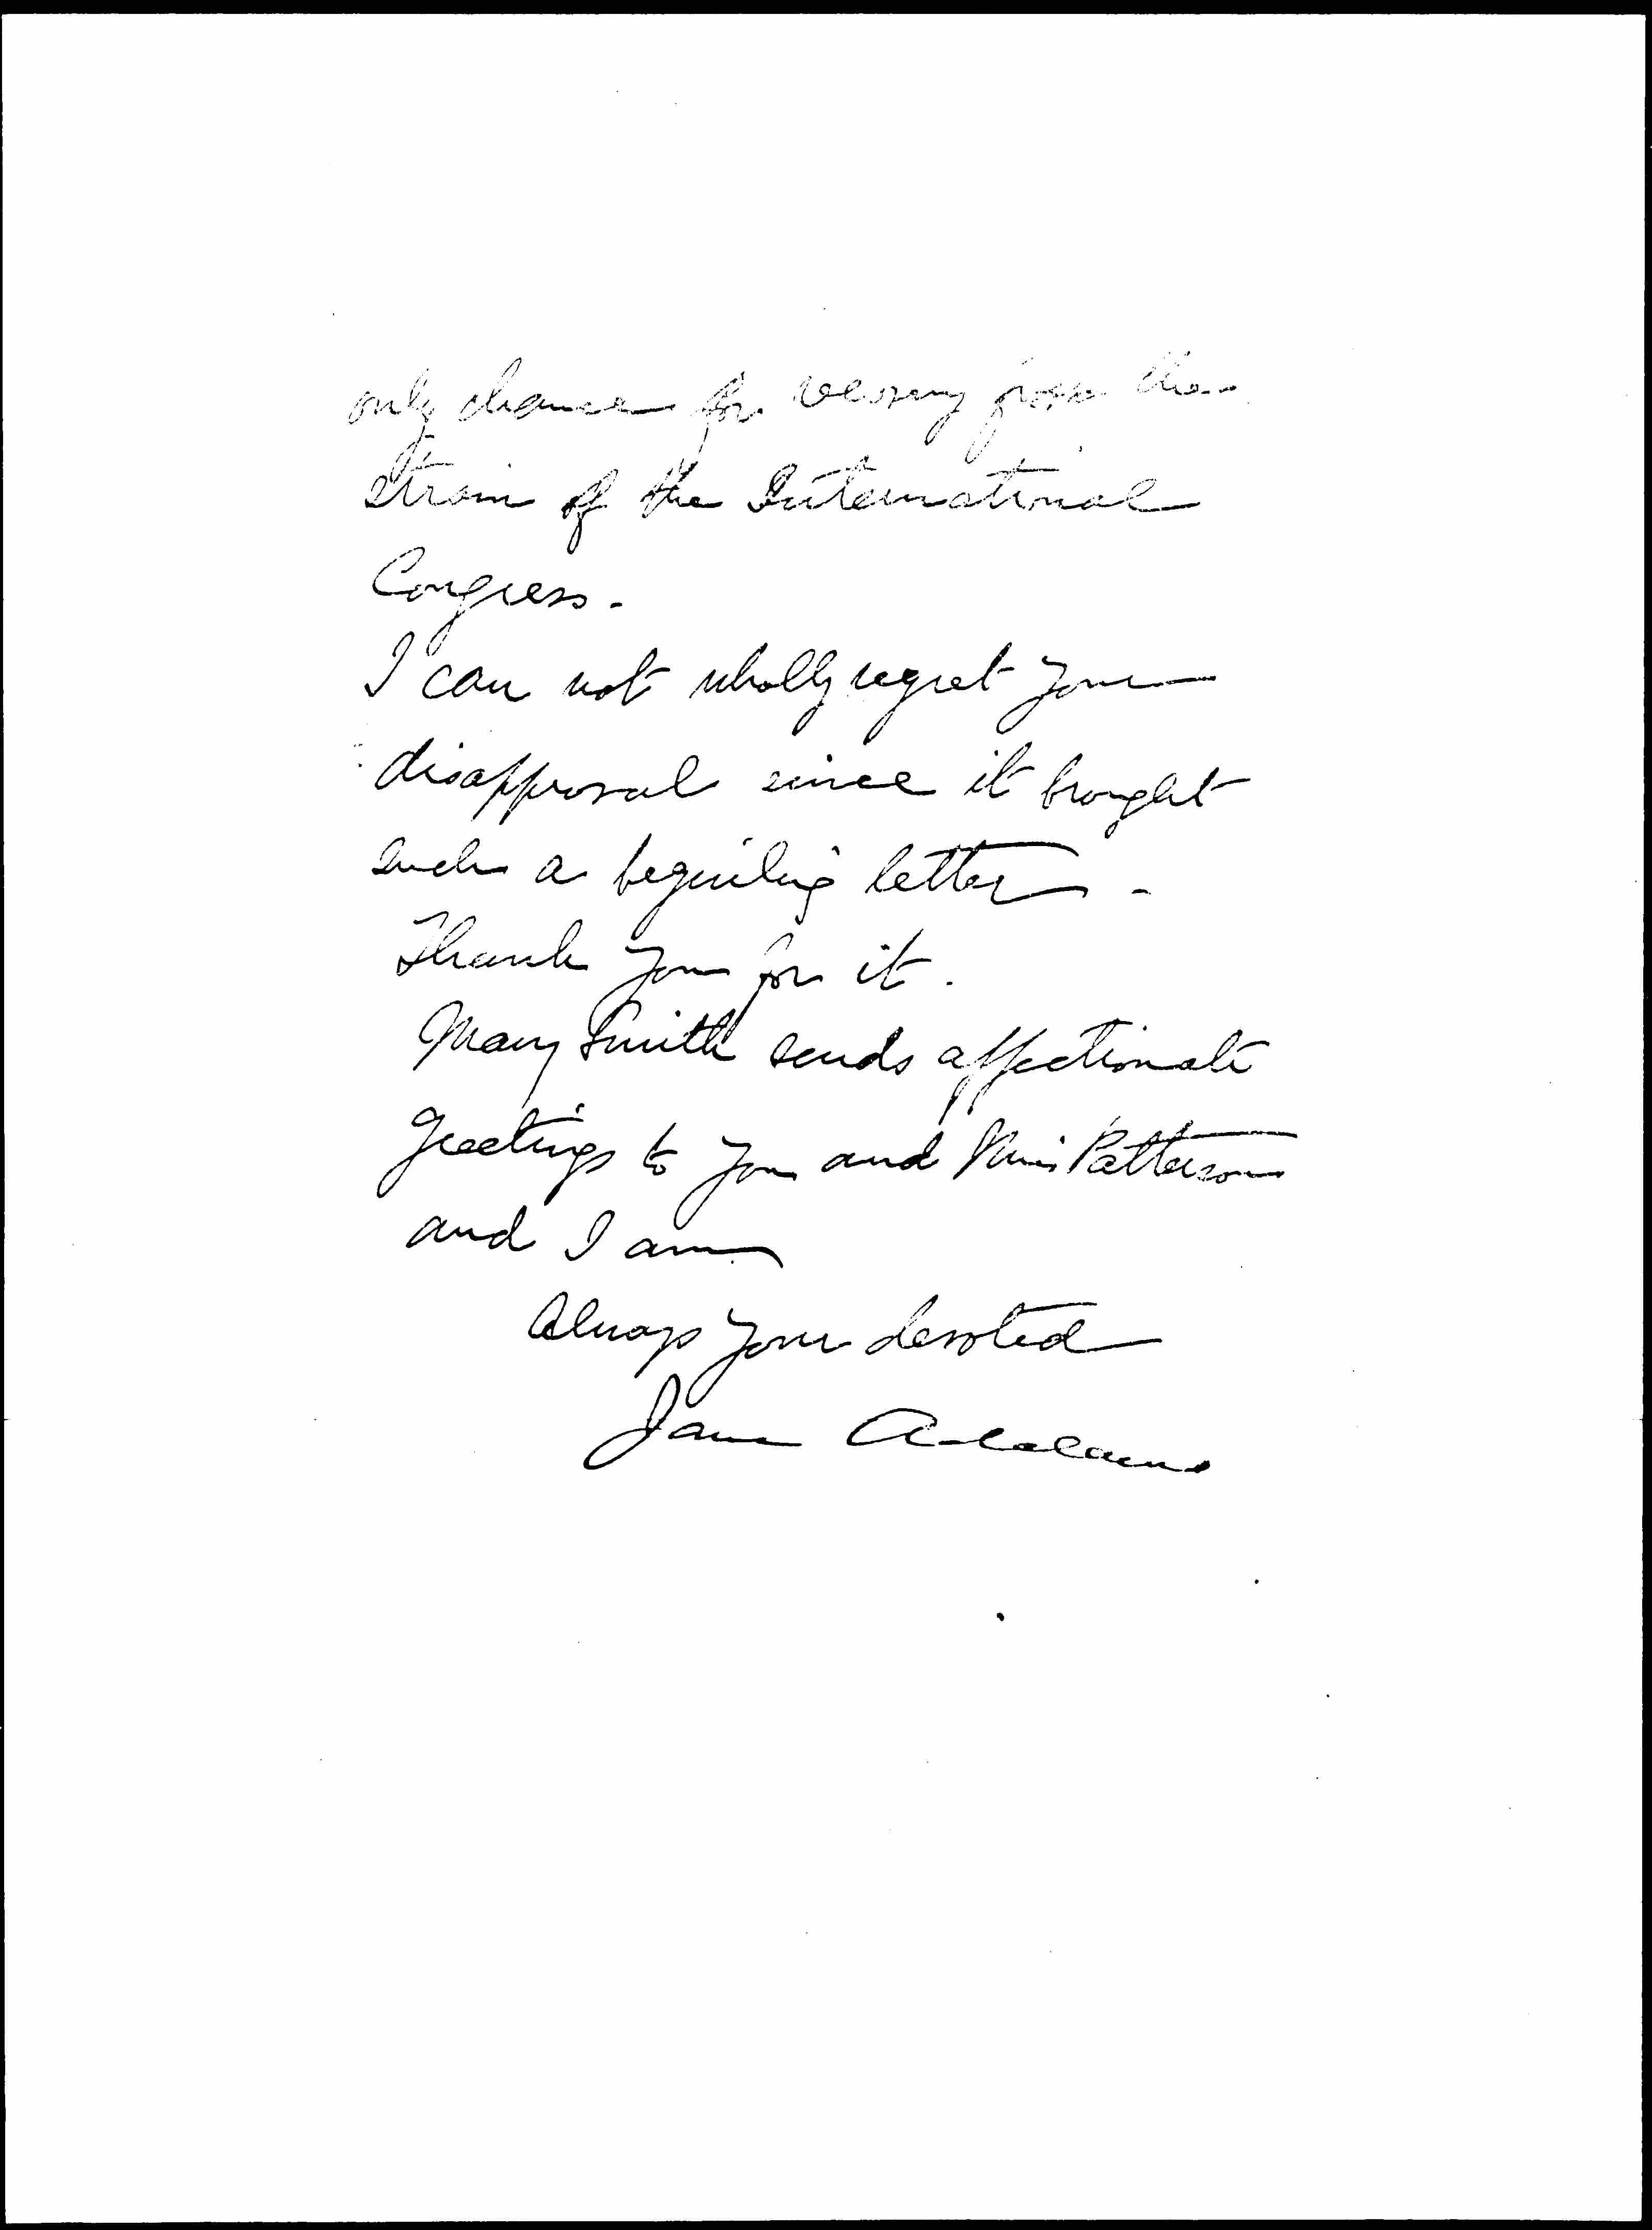 only chance for recovery from the
strain of the International
Congress.
I can not wholly regret your
disapproval since it brought
such a beguiling letter -
Thank you for it.
Mary Smith sends affectionate
greetings to you and Miss Patterson
and I am
always your devoted
Jane Addams